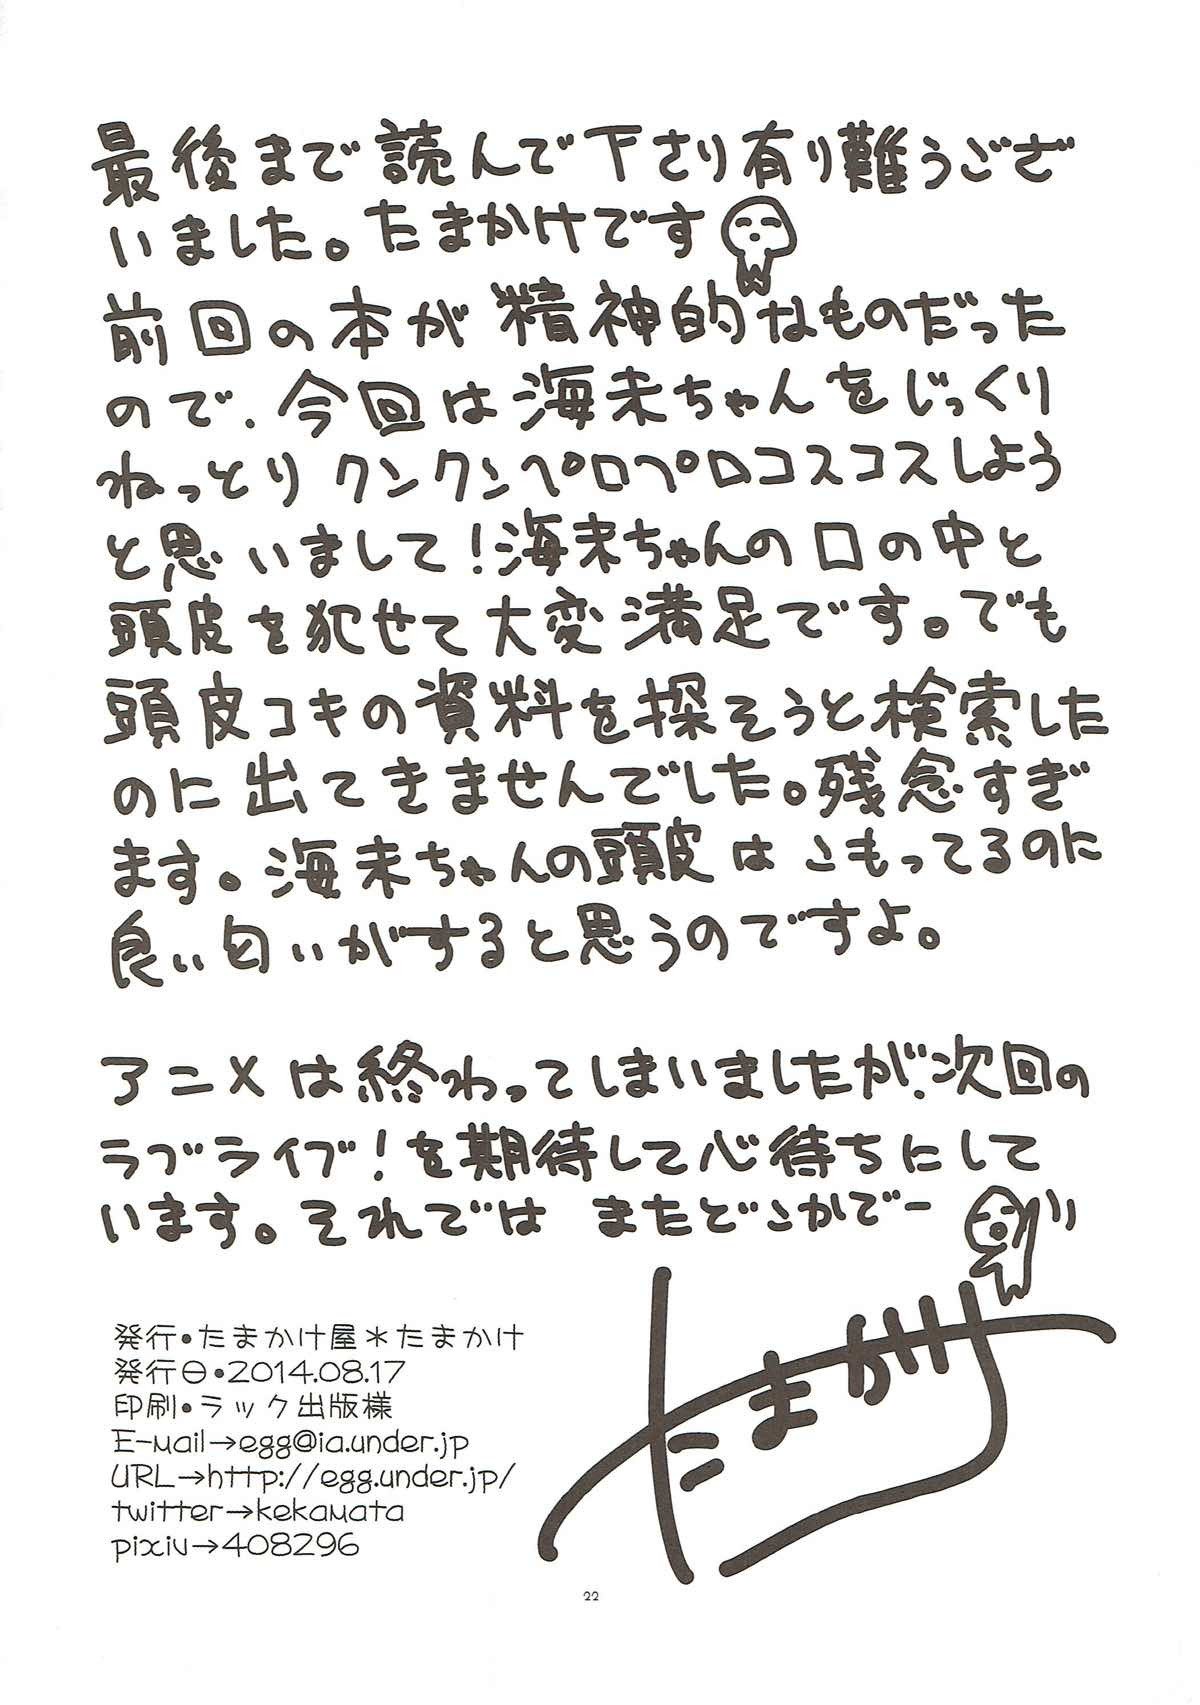 最後まで読んで下さり有り難うござ
いました。たまかけです
前回の本が精神的なものだった
ので、今回は海未ちゃんをじっくり
ねっとりクンクンペロペロコスコスしよう
と思いまして!海未ちゃんの口の中と
頭皮を犯せて大変満足です。でも
頭皮コキの資料を探そうと検索した
のに出てきませんでした。残念すぎ
ます。海未ちゃんの頭皮はこもってるのに
良い匂いがすると思うのですよ。
アニメは終わってしまいましたが、次回の
ラブライブ!を期待して心待ちにして
います。それではまたどこかでー
たまかけ
発行•たまかけ屋*たまかけ
発行日•2014.08.17
印刷•ラック出版様
E-mail→egg@ia.under.jp
URL→http://egg.under.jp/
twitter→kekamata
pixiv→408296
22